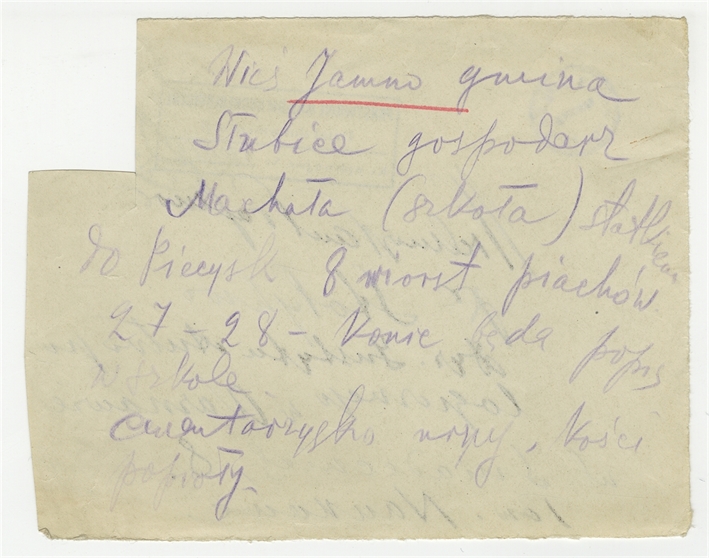 Wieś Jamno gmina
Słubice gospodarz
Machała (szkoła) statkiem
do Piecysk 8 worst piachów
27 28 – Konie będą popis
w szkole
cmentarzysko urny, kości
popioły